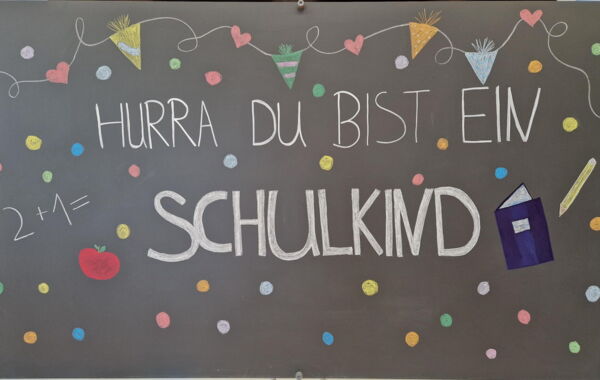 HURRA DU BIST EIN
SCHULKIND
2+1=